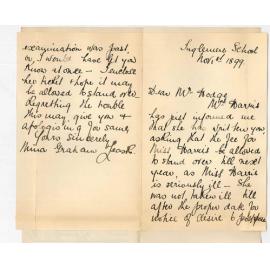 Inglenenk School
Nov 1st 1899.
Dear Mr Hodge
Mrs Harris
has just informed me
that she has written you
asking that the fee for
Miss Harris be allowed
to stand over till next
year, as Miss Harris
is seriously ill - She
was not taken ill till
after the proper date for
notice of desire to postpone
examination was past.
or I would have let you
know at once - I enclose
her ticket & hope it may
be allowed to stand over
Regretting the trouble
this may give you &
apologising for same,
Yours sincerely
Mina Graham